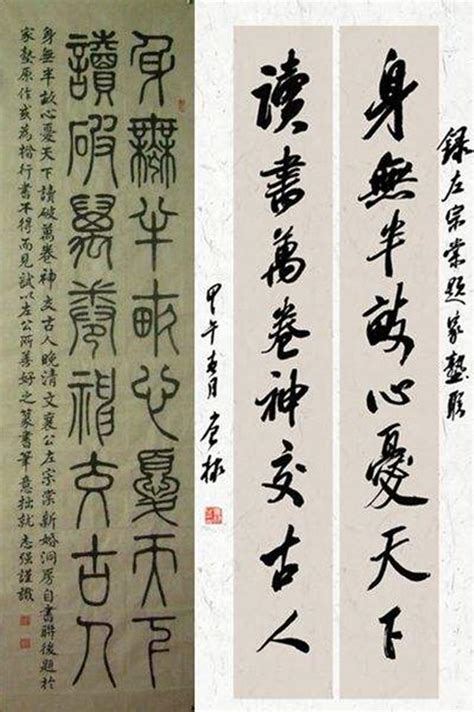 錄左宗棠題家塾聯
身無半畝心憂天下
讀書萬卷神交古人
甲午春月
身無半畝心憂天下
讀破萬卷神交古人
身無半畝心憂天下讀破萬卷神交古人晚清文襄公左宗棠新婚洞房自書聯後題於
家塾原作或為楷行書不得而見試以左公所善好之篆書筆意拙就志强謹識